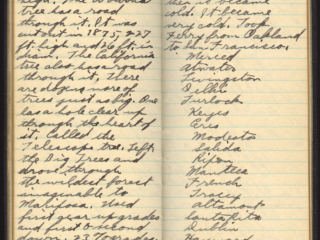 high. The Wawona
tree has a road
through it. It was
cut out in 1875, 227
ft. high and 26 ft. in
diam. The California
tree also has a road
through it. There
are dozens more of
trees just as big. One
has a hole clear up
through the heart of
it. Called the
Telescope tree. Left
the Big Trees and
drove through
the wildest forest
imaginable to
Mariposa. Used
first gear upgrades
and first & second
down. 23 % grades
then it became
cold. It became
very cold. Took
Ferry from Oakland
to San Francisco.
Merced
Atwater
Livingston
Delhi
Turlock
Keyes
Ceres
Modesto
Salida
Ripon
Manteca
French
Tracy
Altamont
Santa Rita
Dublin
Hayward